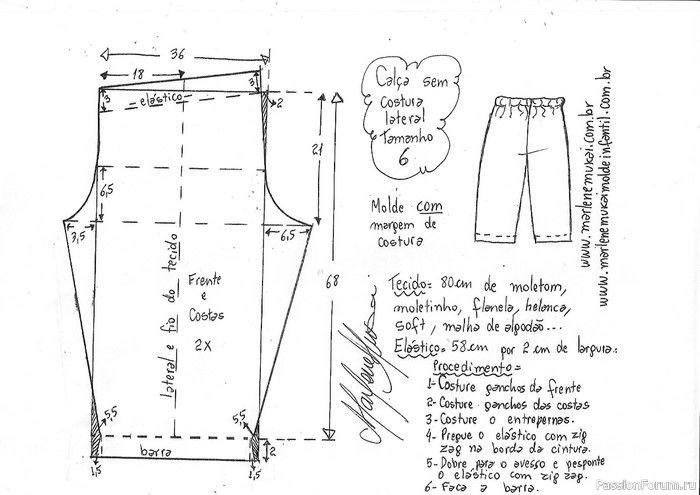 36
18
3
3
2
elástico
21
6,5
3,5
6,5
68
lateral e fio do tecido
Frente
e
Costas
2X
5,5
5,5
barra
1,5
1,5
2
Calça sem
Costura
lateral
Tamanho
6
Molde com
margem de
costura
www.marlenemukai.com.br
www.marlenemukaimoldeinfantil.com.br
Tecido= 80cm de moletom,
moletinho, flanela, helanca,
soft, malha de algodão...
Elástico= 58cm por 2 cm de largura.
Procedimento=
1- Costure ganchos da frente
2- Costure ganchos das costas
3- Costure o entrepernas.
4- Pregue o elástico com zig
zag na borda da cintura.
5- Dobre para o avesso e pesponte
o elástico com zig zag.
6- Faça a barra.
PassionForum.ru